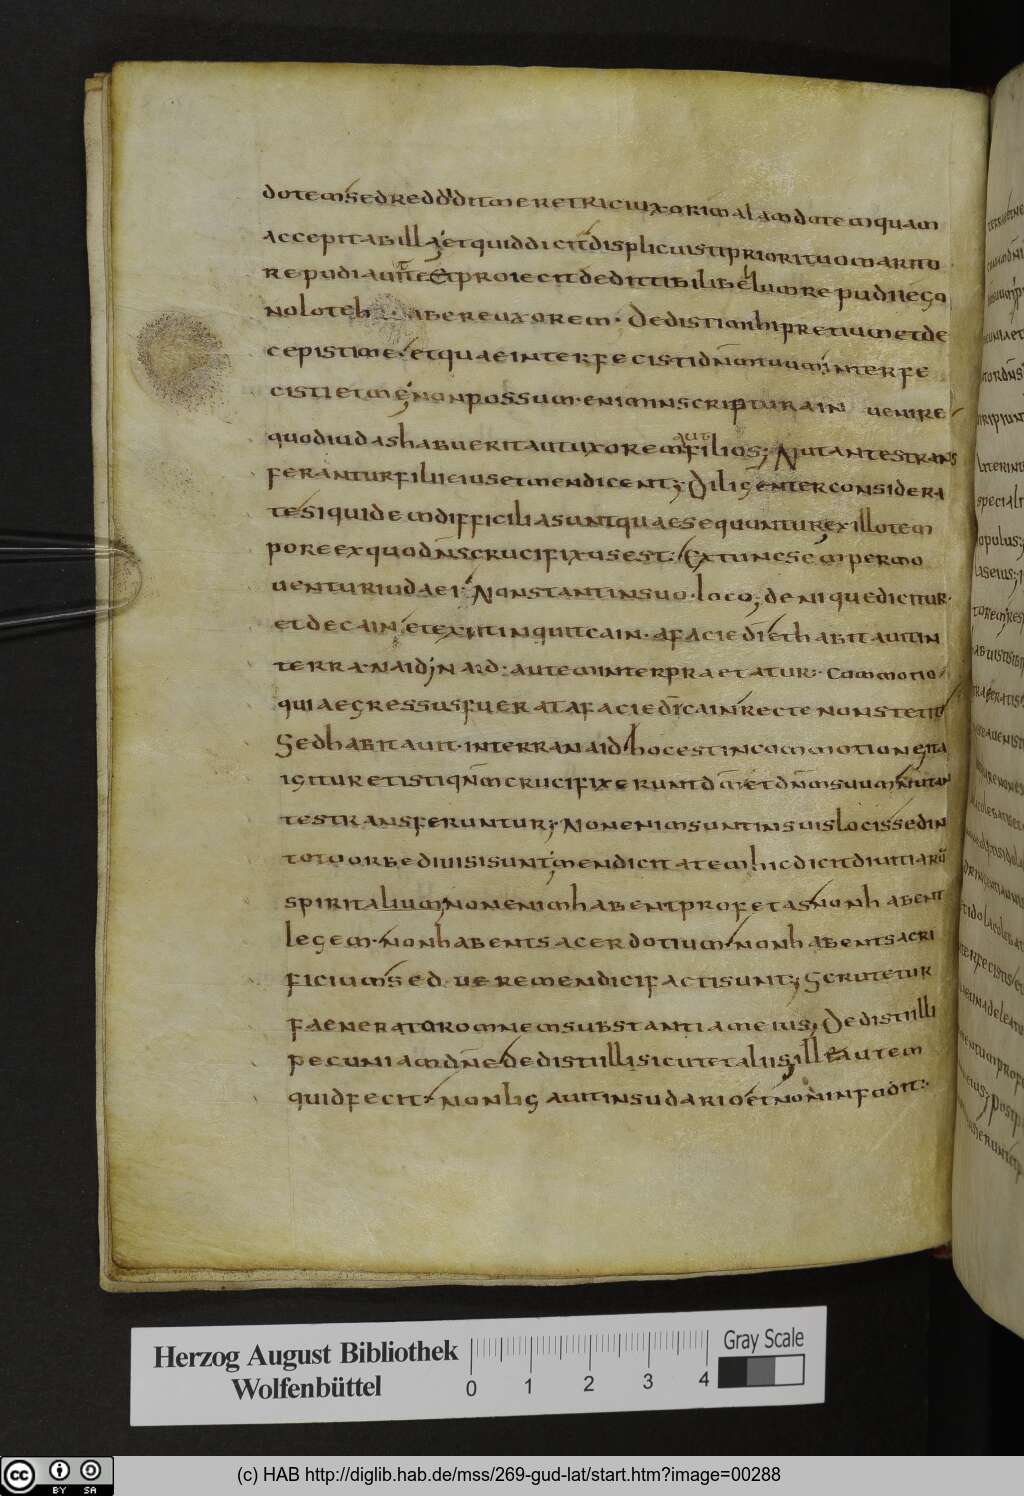 dotem sed reddidit meretrici uxori malam dotem quam
accepit ab illa; et quid dicit displicuisti priori tuo marito
repudiauit te et proiecit dedit tibi libellum repudii ego
nolo te habere uxorem. Dedisti mihi pretium et de
cepisti me. et quae interfecisti dnm tuum interfe
cisti et me; non possum. enim in scriptura in uenire
quod iudas habuerit aut uxorem aut filios; Nutantes trans
ferantur filii eius et mendicent; Diligenter considera
te siquidem difficilia sunt quae sequuntur; ex illo tem
pore ex quo dns crucifixus est. Ex tunc semper mo
uentur iudaei. Non stant in suo. loco; denique dicitur.
et de cain et exiit inquit cain. a facie di et habitauit in
terra. naid; naid. autem interpraetatur. Commotio
qui aegressus fuerat a facie di cain recte non stetit
Sed habitauit. in terra naid hoc est in commotione; ita
igitur et isti qui nm crucifixerunt dm et dnm suum nutan
tes transferuntur; Non enim sunt in suis locis sed in
toto orbe diuisi sunt; mendicitatem hic dicit diuitiarū
spiritalium; non enim habent profetas non habent
legem. non habent sacerdotium. non habent sacri
ficium sed uere mendici facti sunt; Scrutetur
faenerator omnem substantiam eius; Dedisti illi
pecuniam dne dedisti illa sicut et aliis; ille autem
quid fecit. non ligauit in sudario et non infodit.
Herzog August Bibliothek
Wolfenbüttel
0 1 2 3 4
Gray Scale
cc BY SA
(c) HAB http://diglib.hab.de/mss/269-gud-lat/start.htm?image=00288